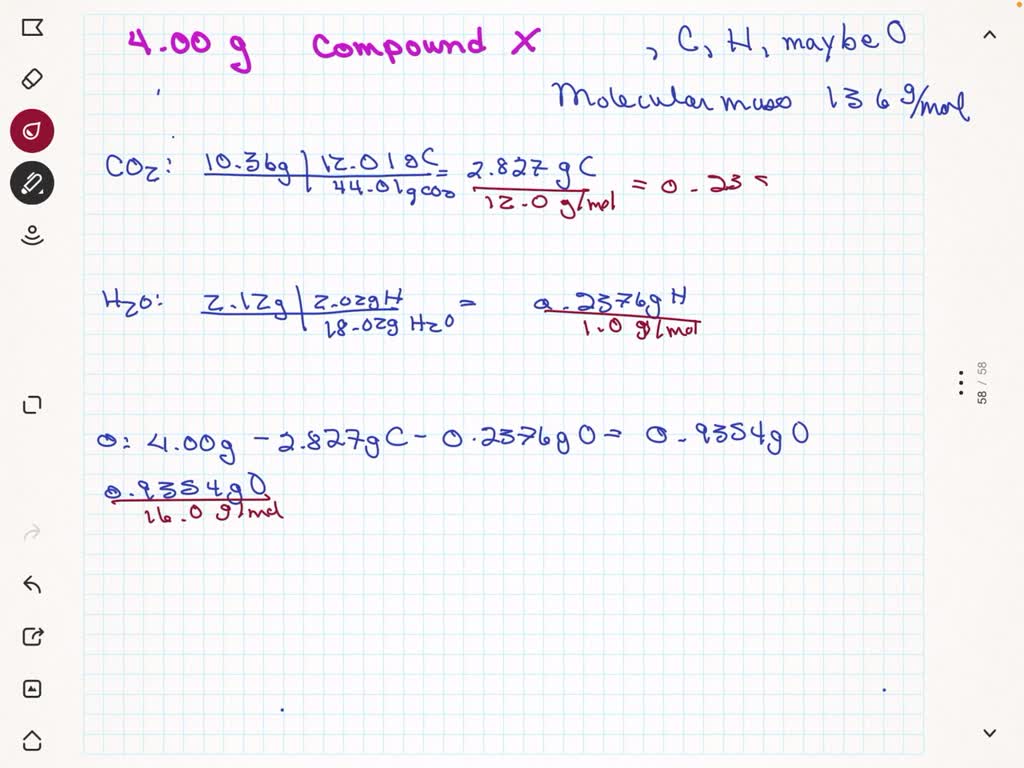 4.00 g Compound X , C, H, maybe O
Molecular mass 136 g/mol
CO2: 10.36g | 12.01gC = 2.827 gC = 0.23
44.01g CO2 12.0 g/mol
H2O: 2.12g | 2.02gH = 0.2376g H
18.02g H2O 1.0 g/mol
O: 4.00g - 2.827gC - 0.2376g O = 0.9354g O
0.9354g O
16.0 g/mol
58 / 58